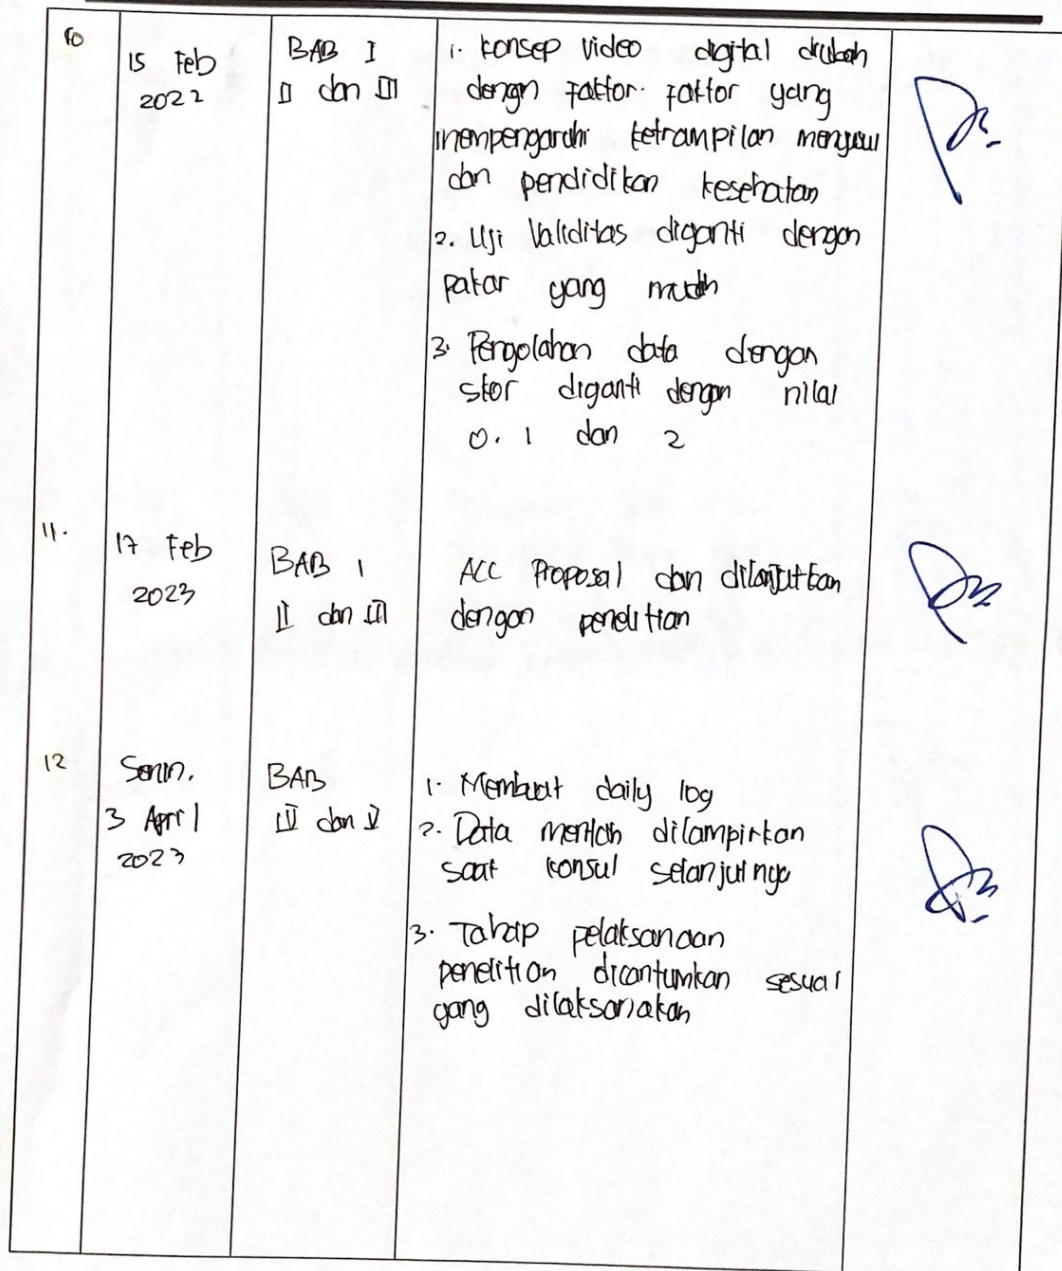 10
15 Feb
2022
BAB I
II dan III
1. konsep video digital diubah
dengn faktor-faktor yang
mempengaruhi ketrampilan menyusui
dan pendidikan kesehatan
2. Uji Validitas diganti dengan
pakar yang
3. Pengolahan data dengan
skor diganti dengan nilai
0. 1 dan 2
11.
17 Feb
2023
BAB I
II dan III
ACC Proposal dan dilanjutkan
dengan penelitian
12
Senin.
3 April
2023
BAB
IV dan V
1. Membuat daily log
2. Data mentah dilampirkan
saat konsul selanjutnya
3. Tahap pelaksanaan
penelitian dicantumkan sesuai
yang dilaksanakan